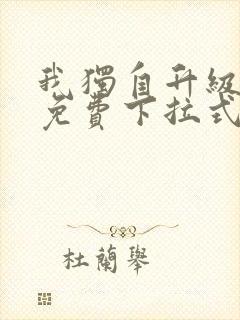 我獨自升級
免費下拉式
杜蘭舉